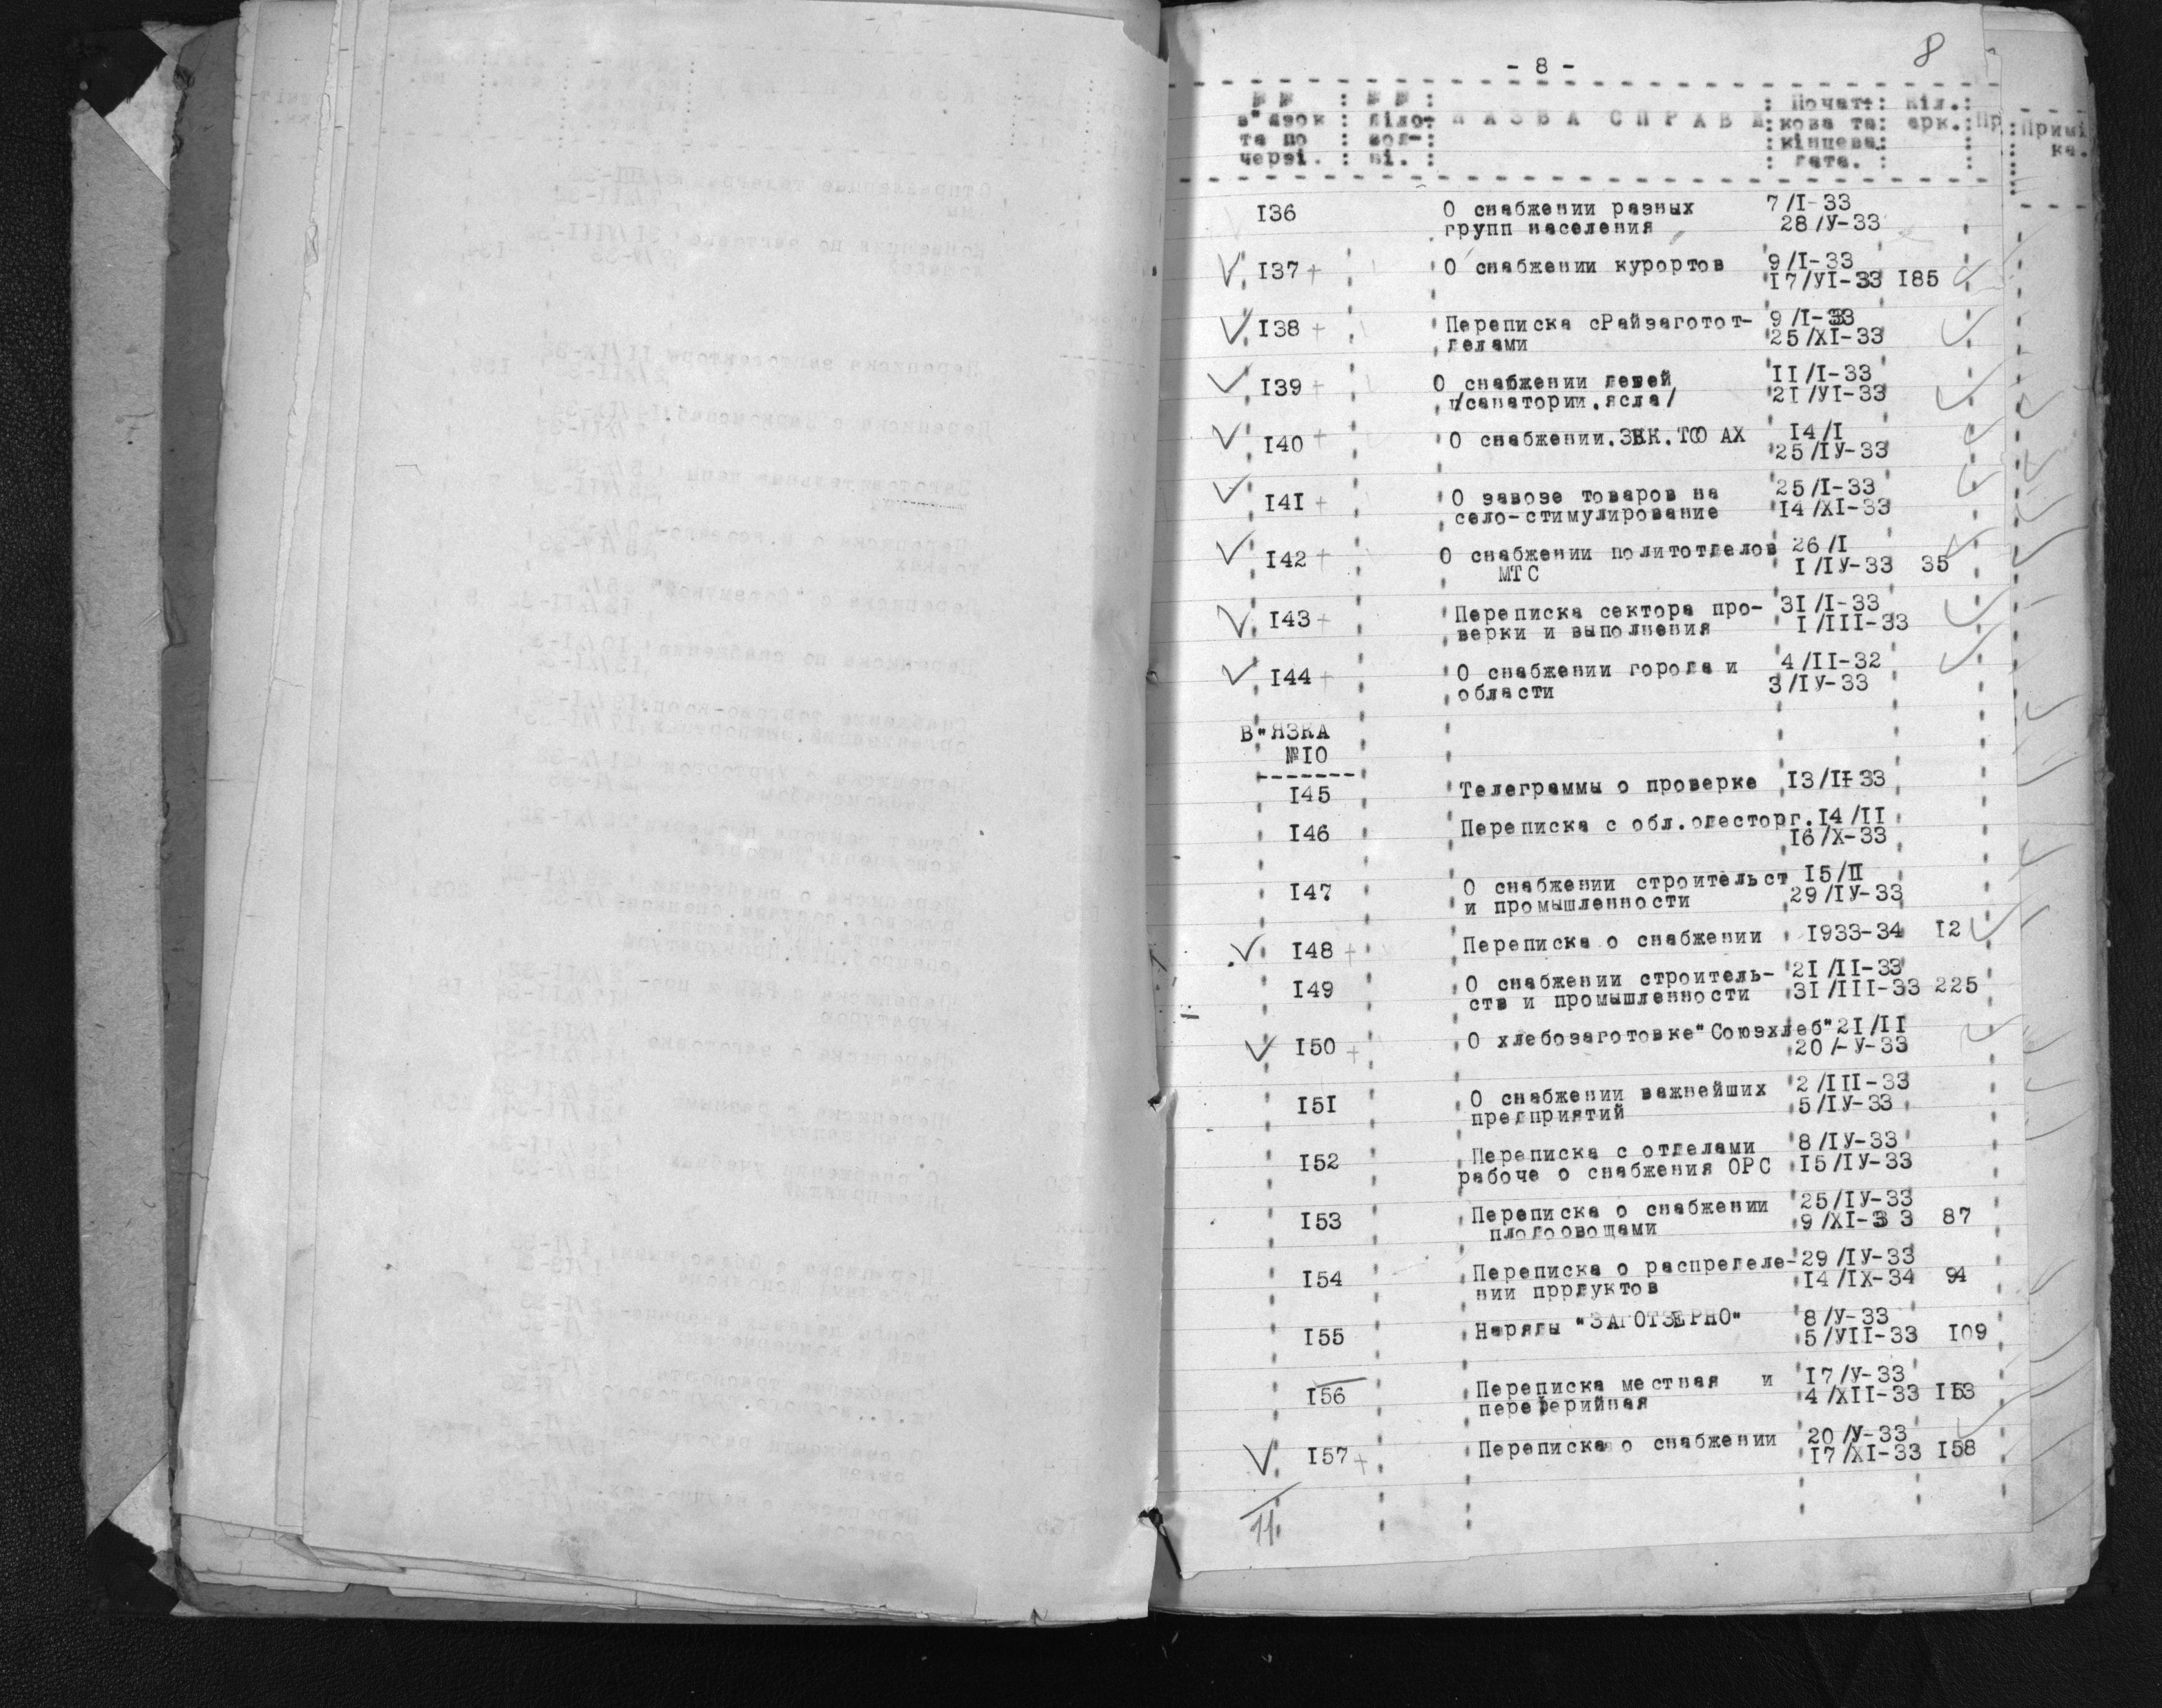 8
- 8 -
№ № : № № : : Почат- : Кіл. :
в"язок : діло- : НАЗВА СПРАВИ : кова та : арк. : Пр : Примі
та по : вод- : : кінцева : : ка.
черзі. : ві. : : дата. :
I36 О снабжении разных 7/I-33
групп населения 28/У-33
I37 + О снабжении курортов 9/I-33
I7/УI-33 I85
I38 + Переписка сРайзаготот- 9/I-33
делами 25/XI-33
I39 + О снабжении детей II/I-33
/санатории.ясла/ 2I/УI-33
I40 + О снабжении. I4/I
25/IУ-33
I4I + О завозе товаров на 25/I-33
село-стимулирование I4/XI-33
I42 + О снабжении политотделов 26/I
МТС I/IУ-33 35
I43 + Переписка сектора про- 3I/I-33
верки и выполнения I/III-33
I44 + О снабжении города и 4/II-32
области 3/IУ-33
В"ЯЗКА
№IO
-------
I45 Телеграммы о проверке I3/II-33
I46 Переписка с обл.одесторг. I4/II
I6/X-33
I47 О снабжении строительст I5/II
и промышленности 29/IУ-33
I48 + Переписка о снабжении I933-34 I2
I49 О снабжении строитель- 2I/II-33
ств и промышленности 3I/III-33 225
I50 + О хлебозаготовке"Союзхлеб" 2I/II
20/-У-33
I5I О снабжении важнейших 2/III-33
предприятий 5/IУ-33
I52 Переписка с отделами 8/IУ-33
рабоче о снабжения ОРС I5/IУ-33
I53 Переписка о снабжении 25/IУ-33
плодоовощами 9/XI-3 3 87
I54 Переписка о распределе- 29/IУ-33
нии прpдуктов I4/IX-34 94
I55 Наряды "ЗАГОТЗЕРНО" 8/У-33
5/УII-33 I09
I56 Переписка местная и I7/У-33
переферийная 4/XII-33 II53
I57 + Переписка о снабжении 20/У-33
I7/XI-33 I58
11